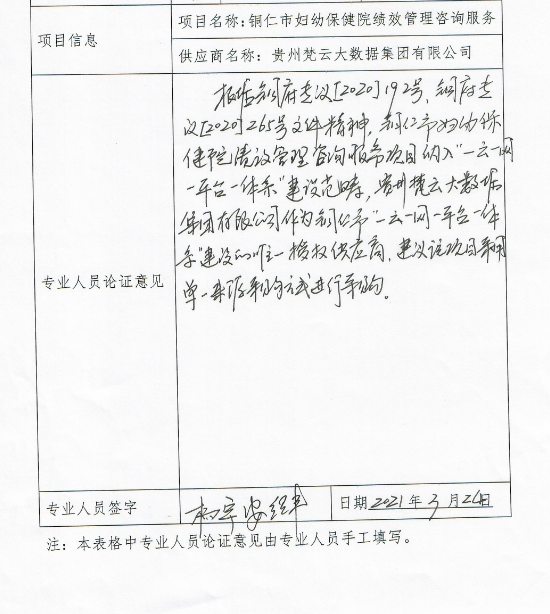 项目信息
项目名称：铜仁市妇幼保健院绩效管理咨询服务
供应商名称：贵州梵云大数据集团有限公司
专业人员论证意见
根据铜府专议[2020]192号、铜府专
议[2020]265号文件精神，铜仁市妇幼保
健院绩效管理咨询服务项目纳入“一云一网
一平台一体系”建设范畴，贵州梵云大数据
集团有限公司作为铜仁市“一云一网一平台一体
系”建设的唯一授权供应商，建议该项目采用
单一来源采购方式进行采购。
专业人员签字
日期 2021年3月24日
注：本表格中专业人员论证意见由专业人员手工填写。